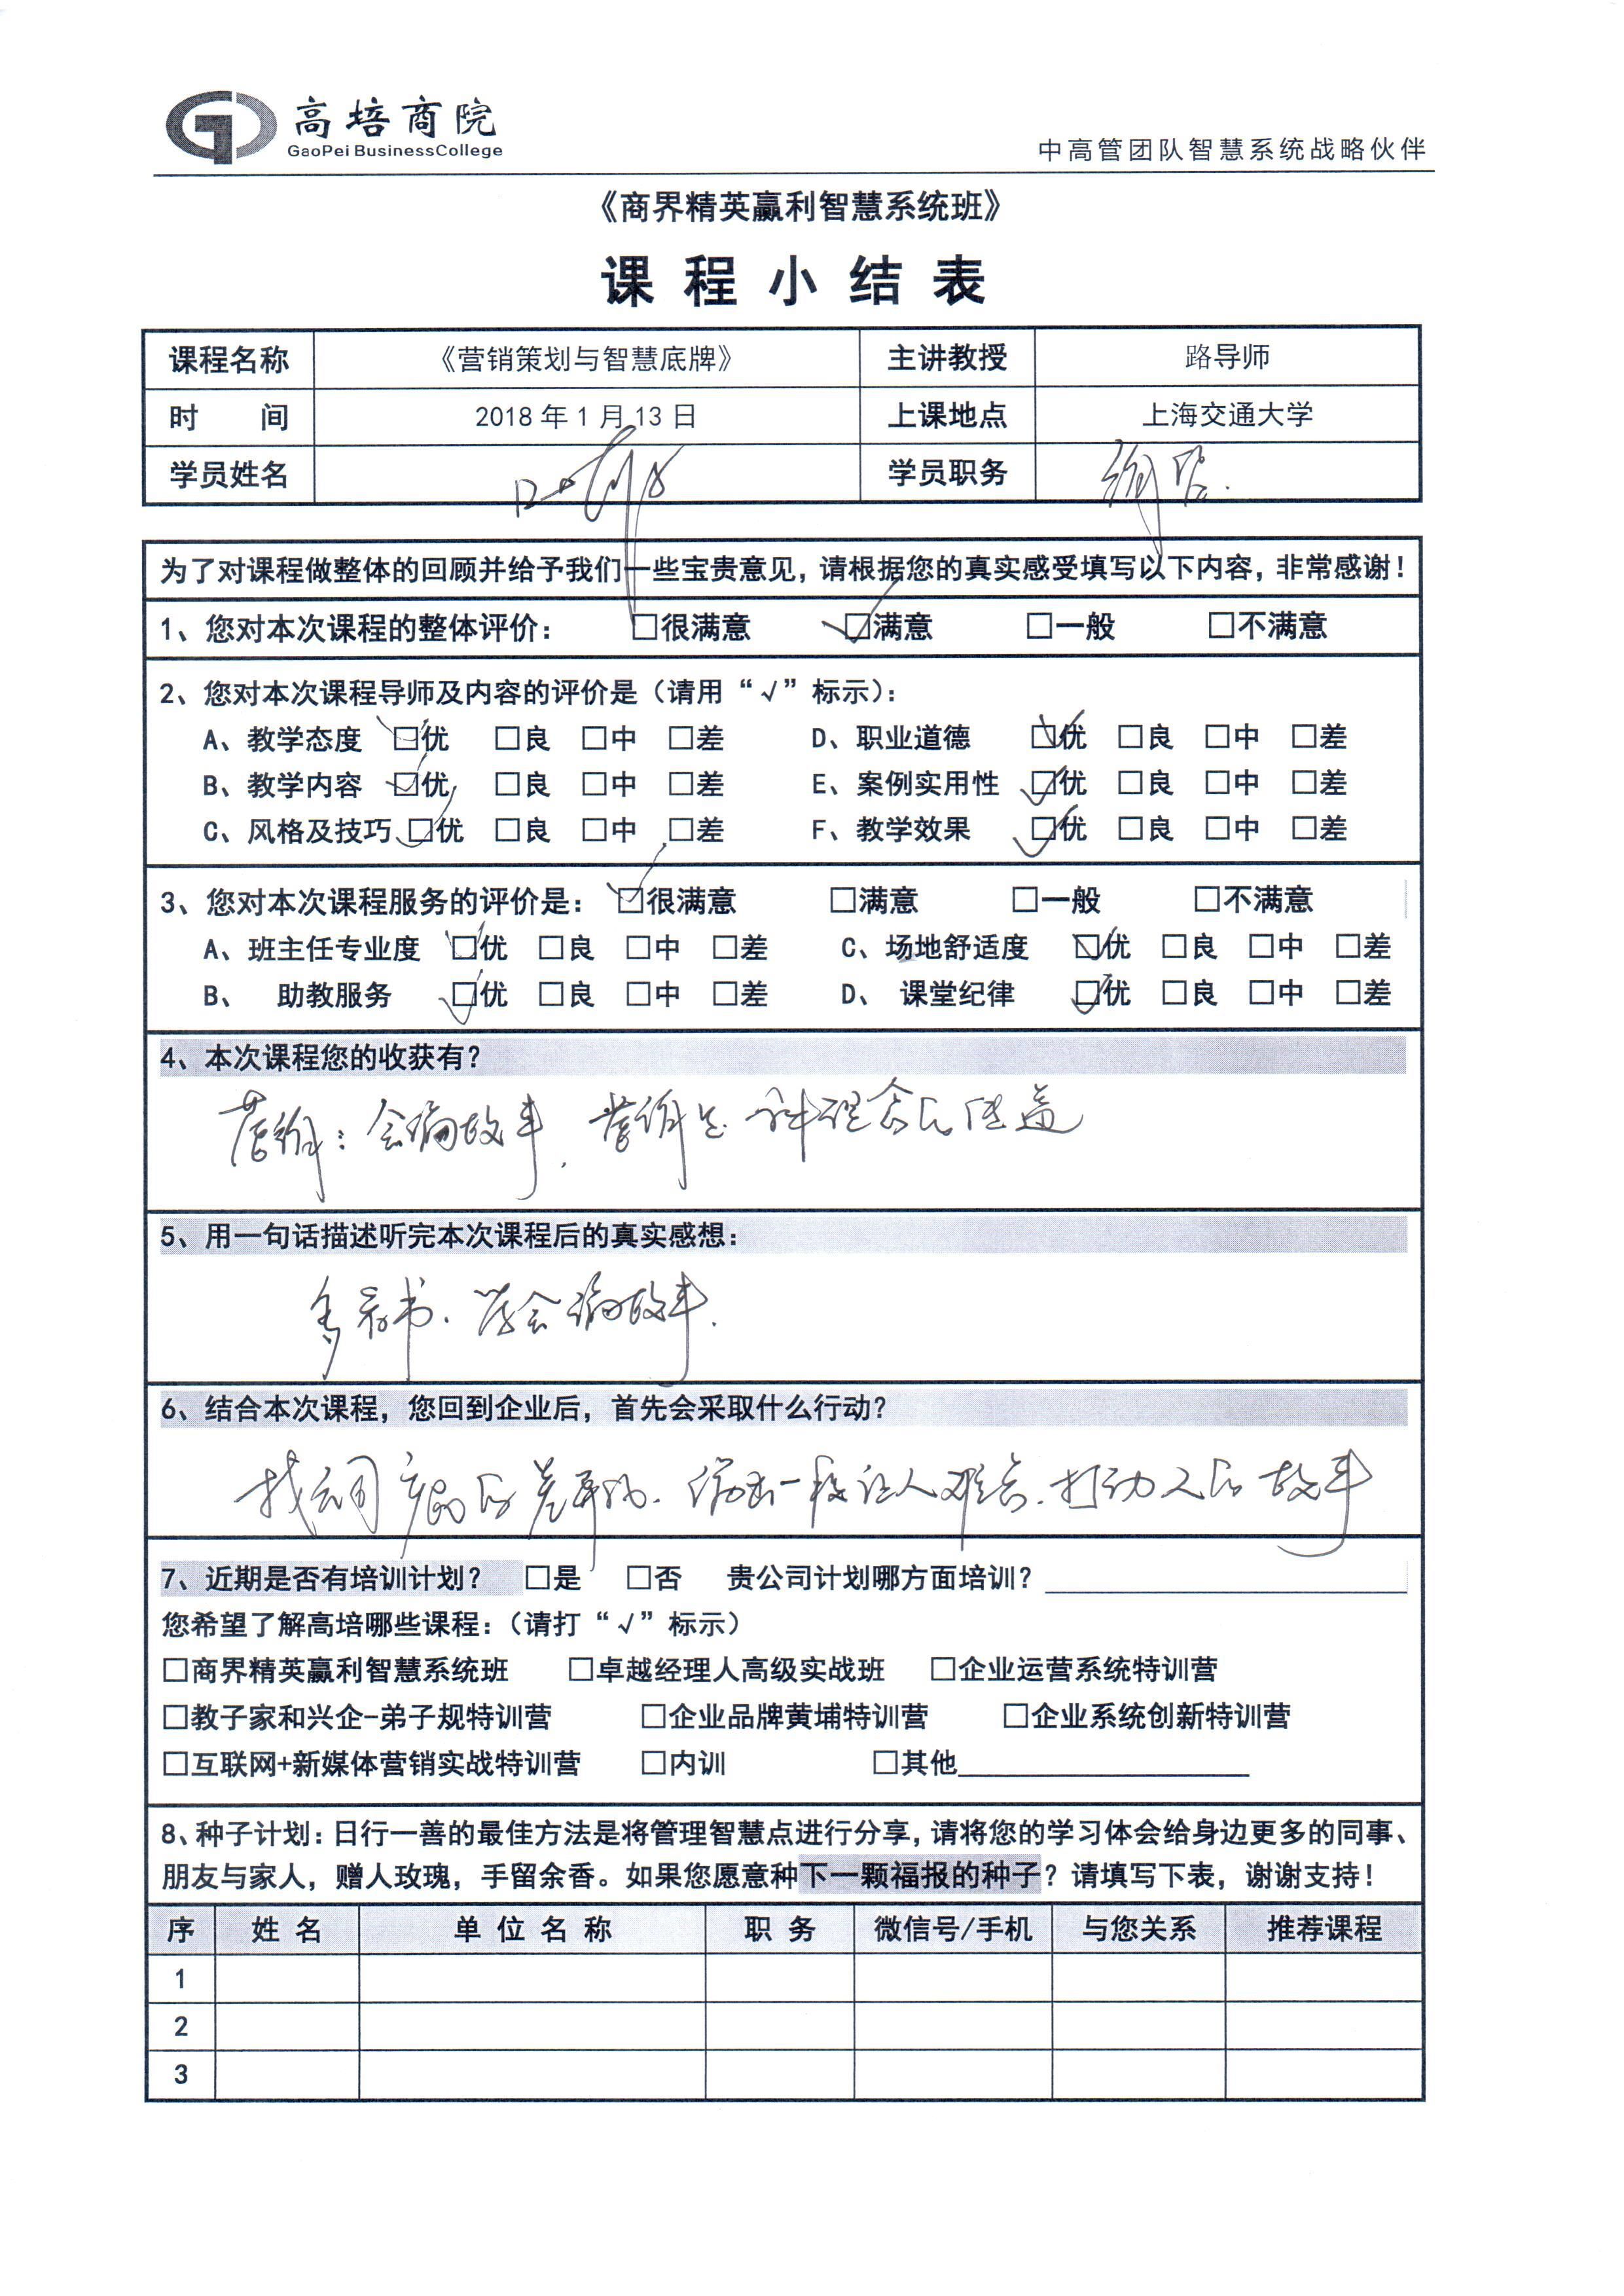 高培商院
GaoPei BusinessCollege
中高管团队智慧系统战略伙伴
《商界精英赢利智慧系统班》
课 程 小 结 表
课程名称 《营销策划与智慧底牌》 主讲教授 路导师
时 间 2018 年 1 月 13 日 上课地点 上海交通大学
学员姓名 学员职务
为了对课程做整体的回顾并给予我们一些宝贵意见，请根据您的真实感受填写以下内容，非常感谢！
1、您对本次课程的整体评价： □很满意 ☑满意 □一般 □不满意
2、您对本次课程导师及内容的评价是（请用“√”标示）：
A、教学态度 ☑优 □良 □中 □差 D、职业道德 ☑优 □良 □中 □差
B、教学内容 ☑优 □良 □中 □差 E、案例实用性 ☑优 □良 □中 □差
C、风格及技巧 ☑优 □良 □中 □差 F、教学效果 ☑优 □良 □中 □差
3、您对本次课程服务的评价是： ☑很满意 □满意 □一般 □不满意
A、班主任专业度 ☑优 □良 □中 □差 C、场地舒适度 ☑优 □良 □中 □差
B、 助教服务 ☑优 □良 □中 □差 D、 课堂纪律 ☑优 □良 □中 □差
4、本次课程您的收获有？
营销：会编故事，营销是一种理念的传道
5、用一句话描述听完本次课程后的真实感想：
多看书、学会编故事．
6、结合本次课程，您回到企业后，首先会采取什么行动？
找公司产品的差异化．编出一段让人难忘．打动人的故事
7、近期是否有培训计划？ □是 □否 贵公司计划哪方面培训？
您希望了解高培哪些课程：（请打“√”标示）
□商界精英赢利智慧系统班 □卓越经理人高级实战班 □企业运营系统特训营
□教子家和兴企-弟子规特训营 □企业品牌黄埔特训营 □企业系统创新特训营
□互联网+新媒体营销实战特训营 □内训 □其他
8、种子计划：日行一善的最佳方法是将管理智慧点进行分享，请将您的学习体会给身边更多的同事、
朋友与家人，赠人玫瑰，手留余香。如果您愿意种下一颗福报的种子？请填写下表，谢谢支持！
序 姓 名 单 位 名 称 职 务 微信号/手机 与您关系 推荐课程
1
2
3